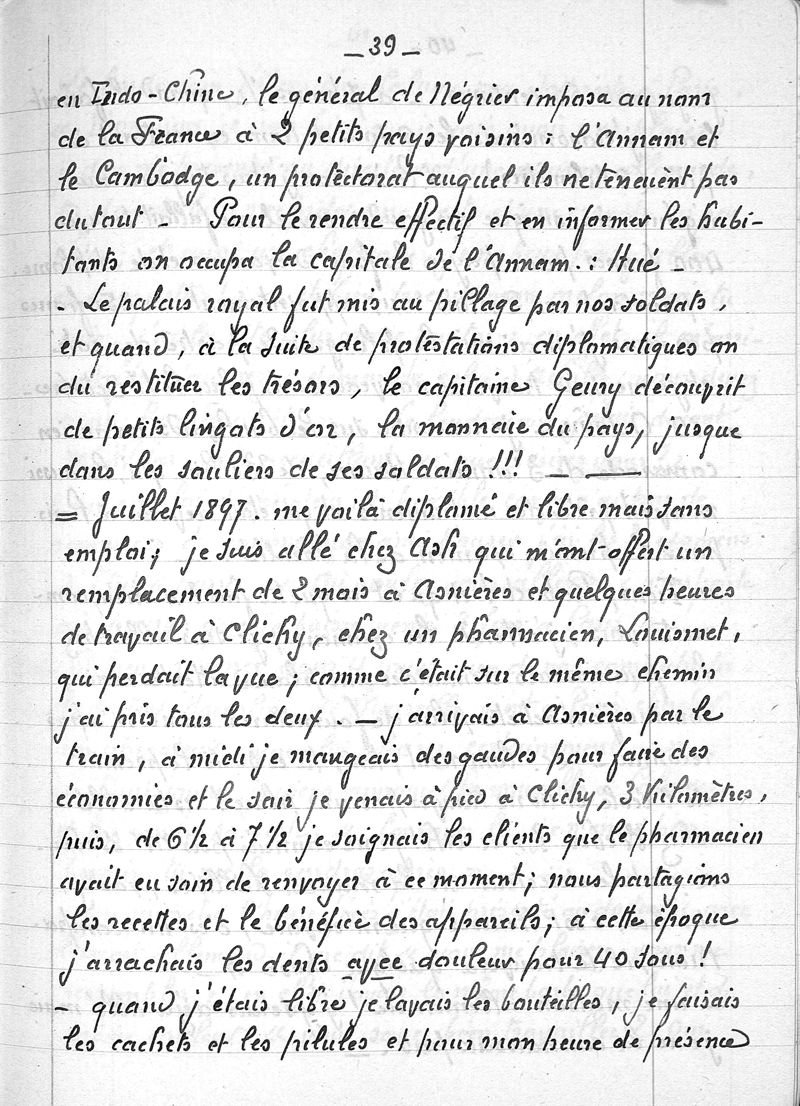 _ 39 _
en Indo-Chine, le général de Négrier imposa au nom
de la France à 2 petits pays voisins : l'Annam et
le Cambodge, un protectorat auquel ils ne tenaient pas
du tout _ Pour le rendre effectif et en informer les habi-
tants on occupa la capitale de l'Annam. : Hué _
- Le palais royal fut mis au pillage par nos soldats,
et quand, à la suite de protestations diplomatiques on
du restituer les trésors, le capitaine Geury découvrit
de petits lingots d'or, la monnaie du pays, jusque
dans les souliers de ses soldats !!! _ __
= Juillet 1897. me voilà diplomé et libre mais sans
emploi ; je suis allé chez Ash qui m'ont offert un
remplacement de 2 mois à Asnières et quelques heures
de travail à Clichy, chez un pharmacien, Louismet,
qui perdait la vue ; comme c'était sur le même chemin
j'ai pris tous les deux. _ j'arrivais à Asnières par le
train, à midi je mangeais des gaudes pour faire des
économies et le soir je venais à pied à Clichy, 3 Kilomètres,
puis, de 6 1/2 à 7 1/2 je soignais les clients que le pharmacien
avait eu soin de renvoyer à ce moment ; nous partagions
les recettes et le bénéfice des appareils ; à cette époque
j'arrachais les dents avec douleur pour 40 sous !
- quand j'étais libre je lavais les bouteilles, je faisais
les cachets et les pilules et pour mon heure de présence